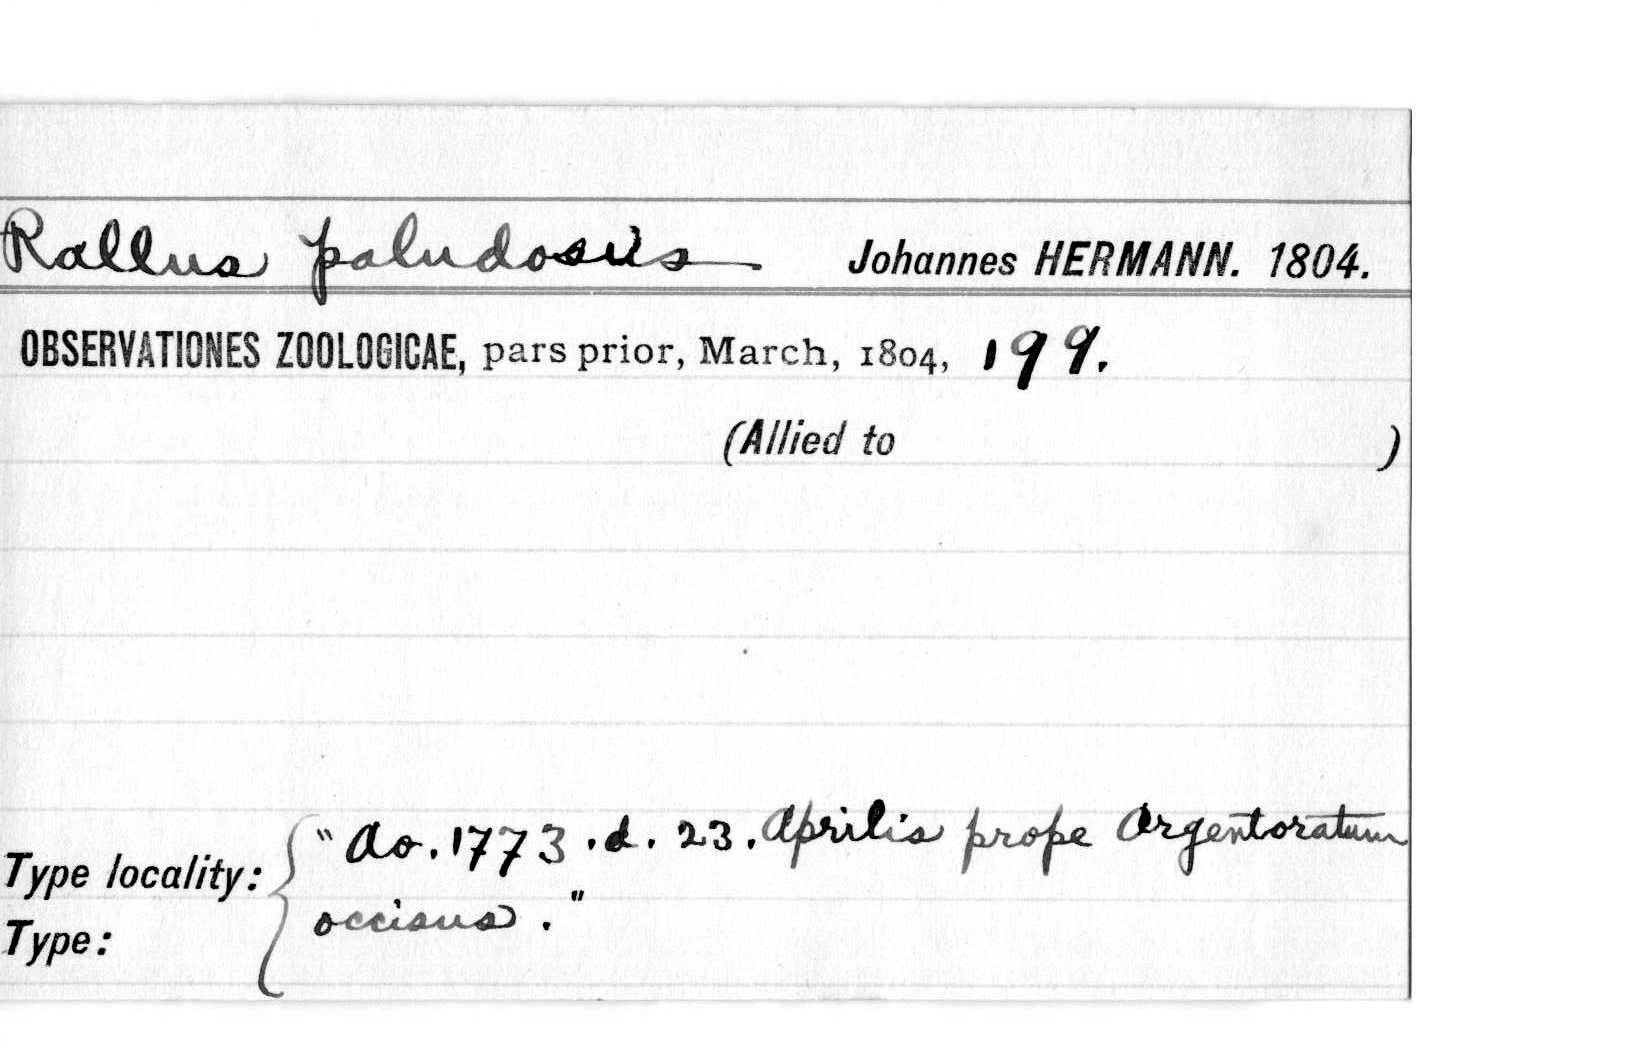 Rallus paludosus Johannes HERMANN. 1804.
OBSERVATIONES ZOOLOGICAE, pars prior, March, 1804, 199.
(Allied to )
Type locality: " Ao. 1773 . d. 23. Aprilis prope Argentoratum
Type: occisus . "